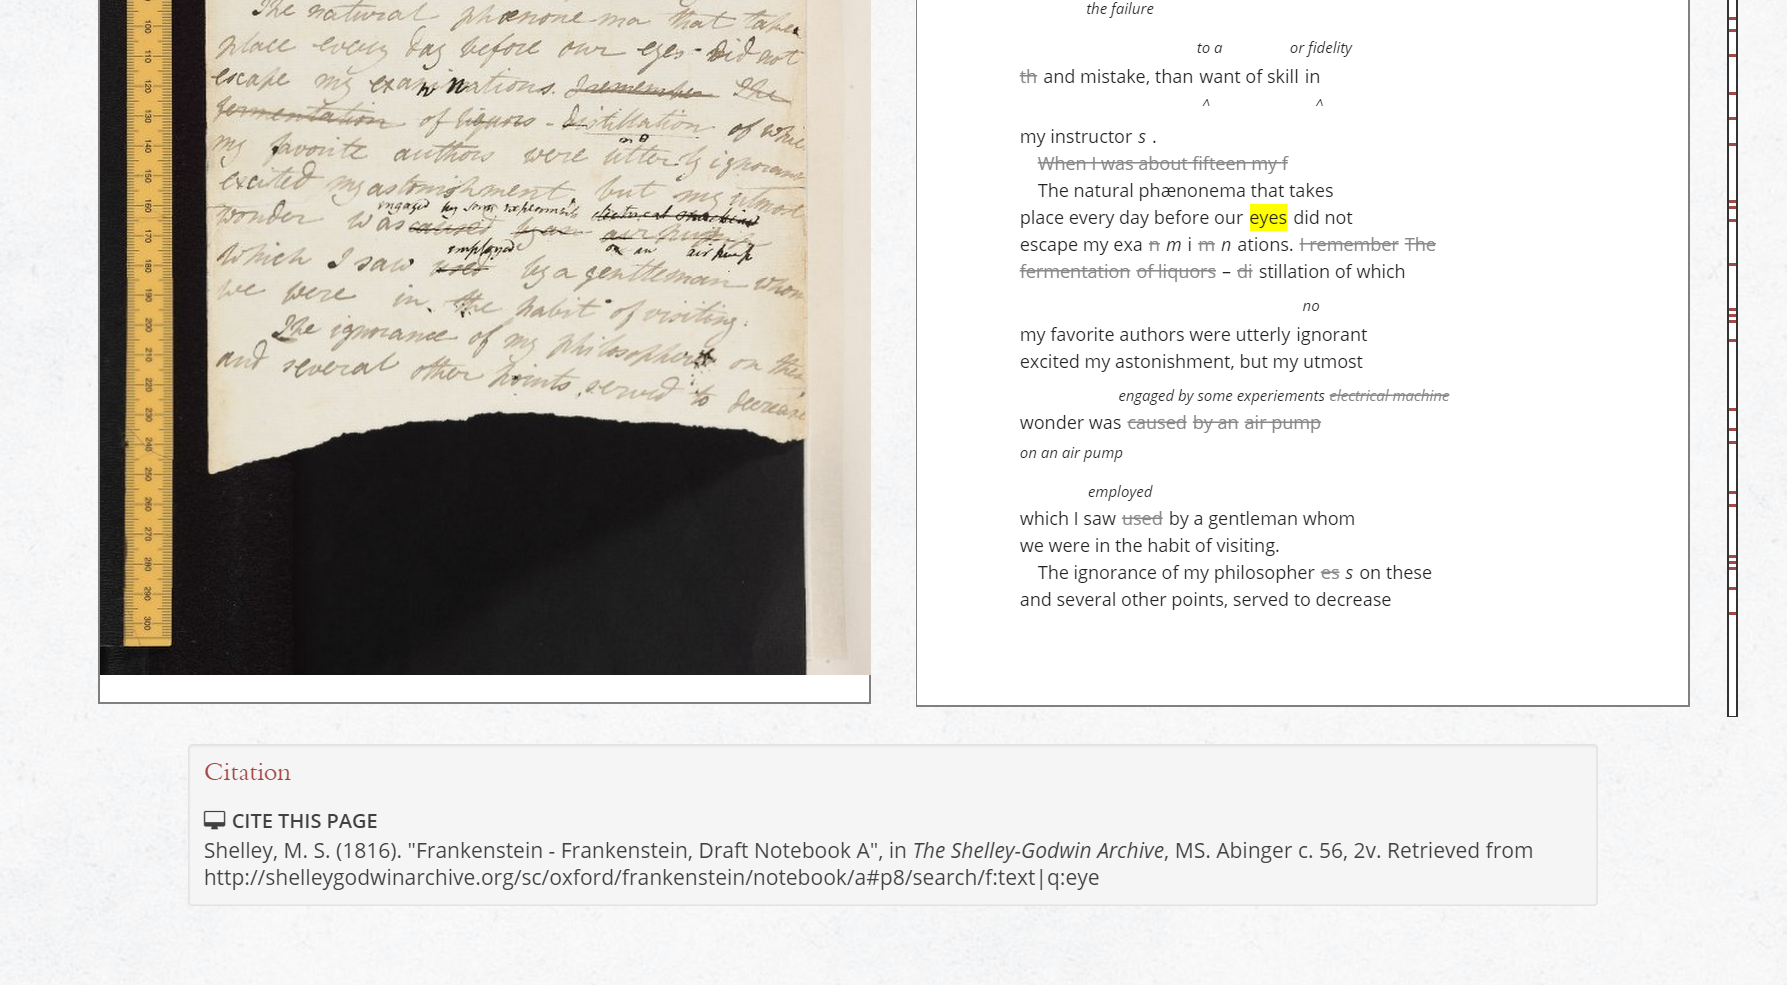 The natural phænonema that takes
place every day before our eyes - did not
escape my examinations. I remember The
fermentation of liquors - distillation of which
no
my favorite authors were utterly ignorant
excited my astonishment but my utmost
engaged by some experiments electrical machine
wonder was caused by an air pump
employed on an air pump
which I saw used by a gentleman whom
we were in the habit of visiting.
The ignorance of my philosophers on these
and several other points, served to decrease
100
110
120
130
140
150
160
170
180
190
200
210
220
230
240
250
260
270
280
290
300
the failure
to a or fidelity
th and mistake, than want of skill in
^ ^
my instructor s .
When I was about fifteen my f
The natural phænonema that takes
place every day before our eyes did not
escape my exa n m i m n ations. I remember The
fermentation of liquors – di stillation of which
no
my favorite authors were utterly ignorant
excited my astonishment, but my utmost
engaged by some experiements electrical machine
wonder was caused by an air pump
on an air pump
employed
which I saw used by a gentleman whom
we were in the habit of visiting.
The ignorance of my philosopher es s on these
and several other points, served to decrease
Citation
CITE THIS PAGE
Shelley, M. S. (1816). "Frankenstein - Frankenstein, Draft Notebook A", in The Shelley-Godwin Archive, MS. Abinger c. 56, 2v. Retrieved from
http://shelleygodwinarchive.org/sc/oxford/frankenstein/notebook/a#p8/search/f:text|q:eye